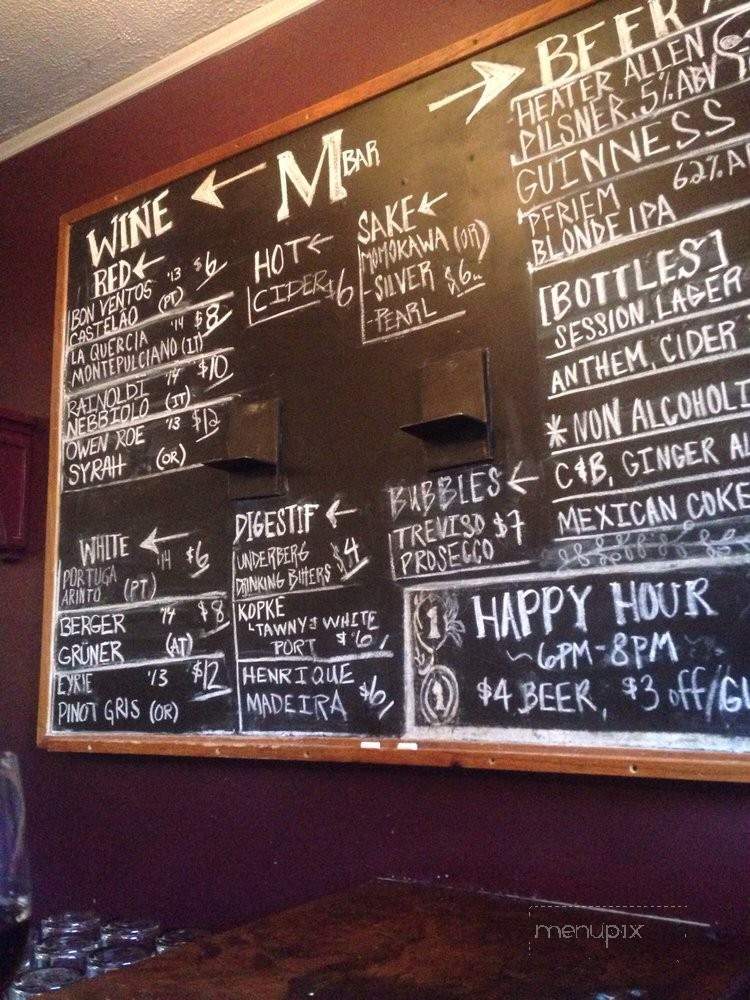 M BAR
WINE
RED
BON VENTOS '13 $6
CASTELÃO (PT)
LA QUERCIA '14 $8
MONTEPULCIANO (IT)
RAINOLDI '14 $10
NEBBIOLO (IT)
OWEN ROE '13 $12
SYRAH (OR)
WHITE
PORTUGA '14 $6
ARINTO (PT)
BERGER '14 $8
GRÜNER (AT)
EYRIE '13 $12
PINOT GRIS (OR)
HOT
CIDER $6
SAKE
MOMOKAWA (OR)
-SILVER $6
-PEARL
DIGESTIF
UNDERBERG $4
DRINKING BITTERS
KOPKE
TAWNY & WHITE
PORT $6
HENRIQUE
MADEIRA $6
BUBBLES
TREVISO $7
PROSECCO
BEER
HEATER ALLEN
PILSNER, 5% ABV
GUINNESS
PFRIEM 6.2% A
BLONDE IPA
[BOTTLES]
SESSION, LAGER
ANTHEM, CIDER
*NON ALCOHOLI
C&B, GINGER AL
MEXICAN COKE
1
1
HAPPY HOUR
~6PM-8PM
$4 BEER, $3 off/GL
menupix